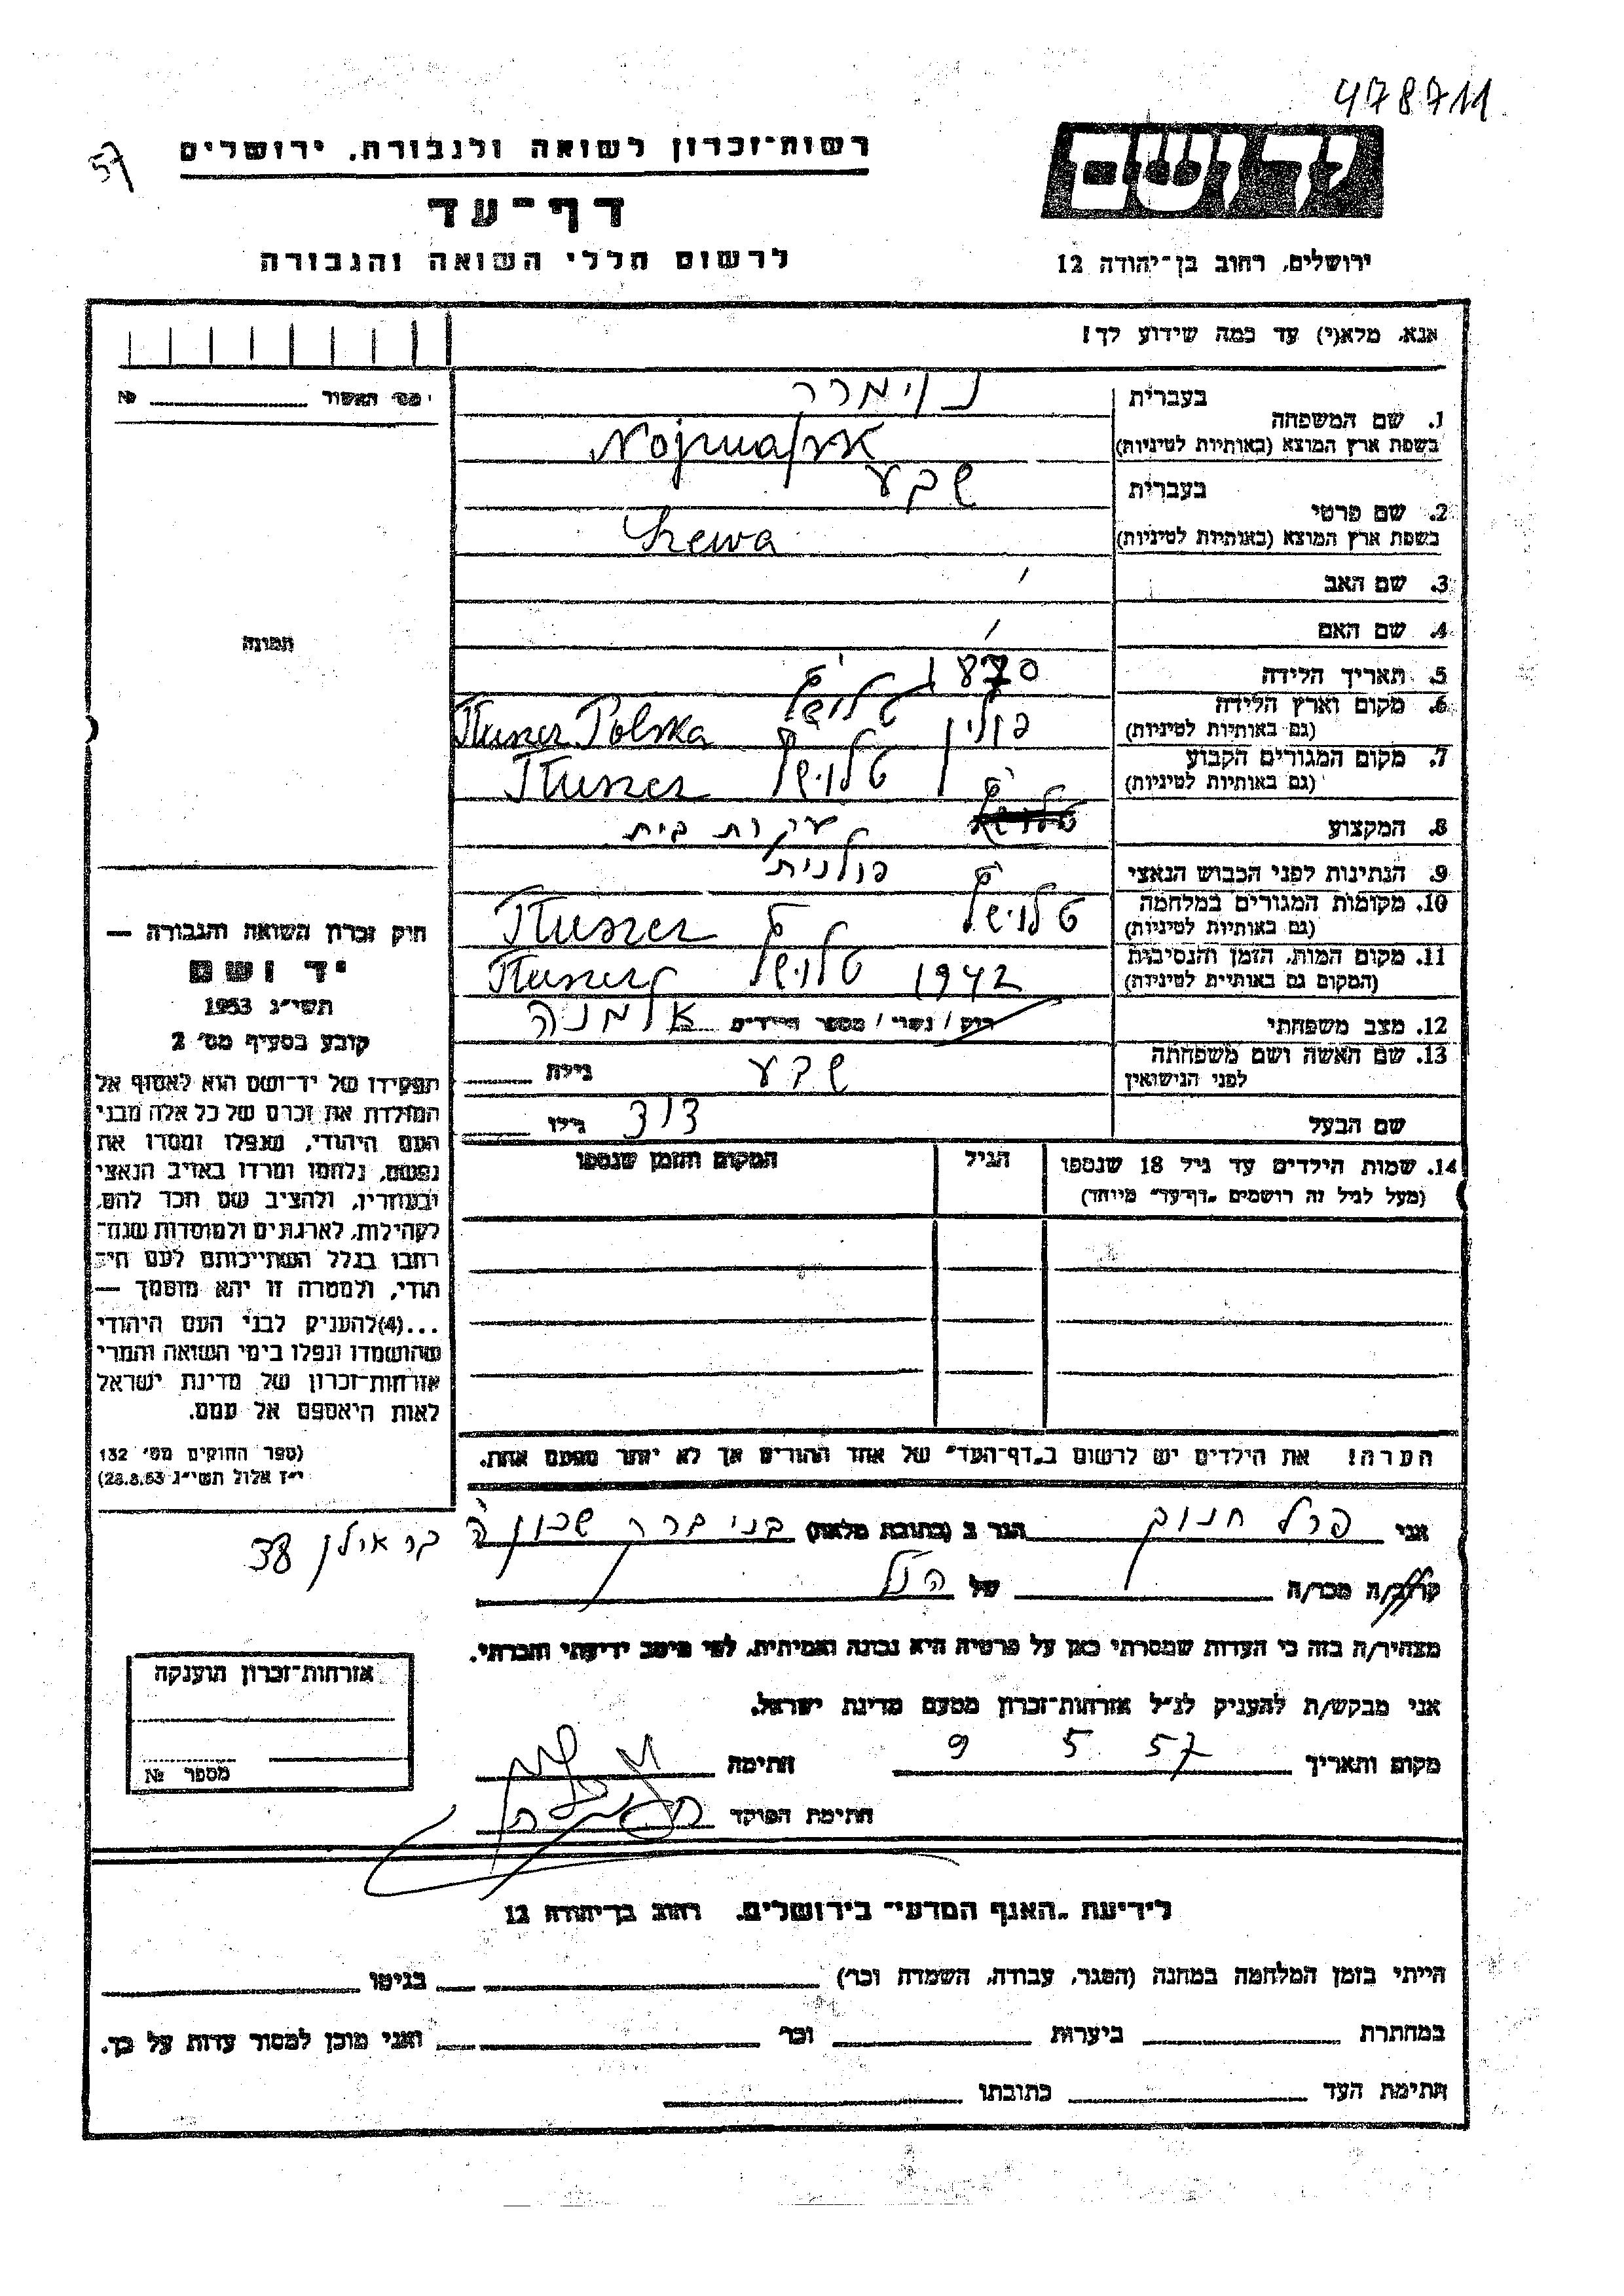 478711
57
רשות-זכרון לשואה ולגבורה, ירושלים
דף-עד
לרשום חללי השואה והגבורה
ידושם
ירושלים, רחוב בן-יהודה 12
אנא, מלא(י) עד כמה שידוע לך!
מס' האשור № 
1. שם המשפחה
בעברית
בשפת ארץ המוצא (באותיות לטיניות)
2. שם פרטי
בעברית שבע
בשפת ארץ המוצא (באותיות לטיניות) Szewa
3. שם האב
4. שם האם
5. תאריך הלידה 1870
6. מקום וארץ הלידה (גם באותיות לטיניות) פולין Tłuszcz Polska
7. מקום המגורים הקבוע (גם באותיות לטיניות) Tłuszcz
8. המקצוע עקרת בית
9. הנתינות לפני הכבוש הנאצי פולנית
10. מקומות המגורים במלחמה (גם באותיות לטיניות) Tłuszcz
11. מקום המות, הזמן והנסיבות (המקום גם באותיות לטיניות) 1942 Tłuszcz
12. מצב משפחתי רוק / נשוי / מספר הילדים אלמנה
13. שם האשה ושם משפחתה לפני הנישואין שבע גילה
שם הבעל דוד גילו
14. שמות הילדים עד גיל 18 שנספו
(מעל לגיל זה רושמים "דף-עד" מיוחד)
הגיל
המקום והזמן שנספו
הערה! את הילדים יש לרשום ב"דף-העד" של אחד ההורים אך לא יותר מפעם אחת.
תמונה
חוק זכרון השואה והגבורה —
יד ושם
תשי"ג 1953
קובע בסעיף מס' 2
תפקידו של יד-ושם הוא לאסוף אל
המולדת את זכרם של כל אלה מבני
העם היהודי, שנפלו ומסרו את
נפשם, נלחמו ומרדו באויב הנאצי
ובעוזריו, ולהציב שם וזכר להם,
לקהילות, לארגונים ולמוסדות שנח-
רבו בגלל השתייכותם לעם הי-
הודי, ולמטרה זו יהא מוסמך —
...(4) להעניק לבני העם היהודי
שהושמדו ונפלו בימי השואה והמרי
אזרחות-זכרון של מדינת ישראל
לאות היאספם אל עמם.
(ספר החוקים מס' 132
י"ז אלול תשי"ג 28.8.53)
אני פרל חנוך הגר ב (כתובת מלאה) בני ברק שכון ה בר אילן 38
קרוב/ה מכר/ה של הנ"ל
מצהיר/ה בזה כי העדות שמסרתי כאן על פרטיה היא נכונה ואמיתית, לפי מיטב ידיעתי והכרתי.
אני מבקש/ת להעניק לנ"ל אזרחות-זכרון מטעם מדינת ישראל.
מקום ותאריך 9 5 57 חתימה
חתימת הפוקד
אזרחות-זכרון הוענקה
מספר №
לידיעת "האגף המדעי" בירושלים, רחוב בן-יהודה 12
הייתי בזמן המלחמה במחנה (הסגר, עבודה, השמדה וכו') בגיטו
במחתרת ביערות וכו' ואני מוכן למסור עדות על כך.
חתימת העד כתובתו